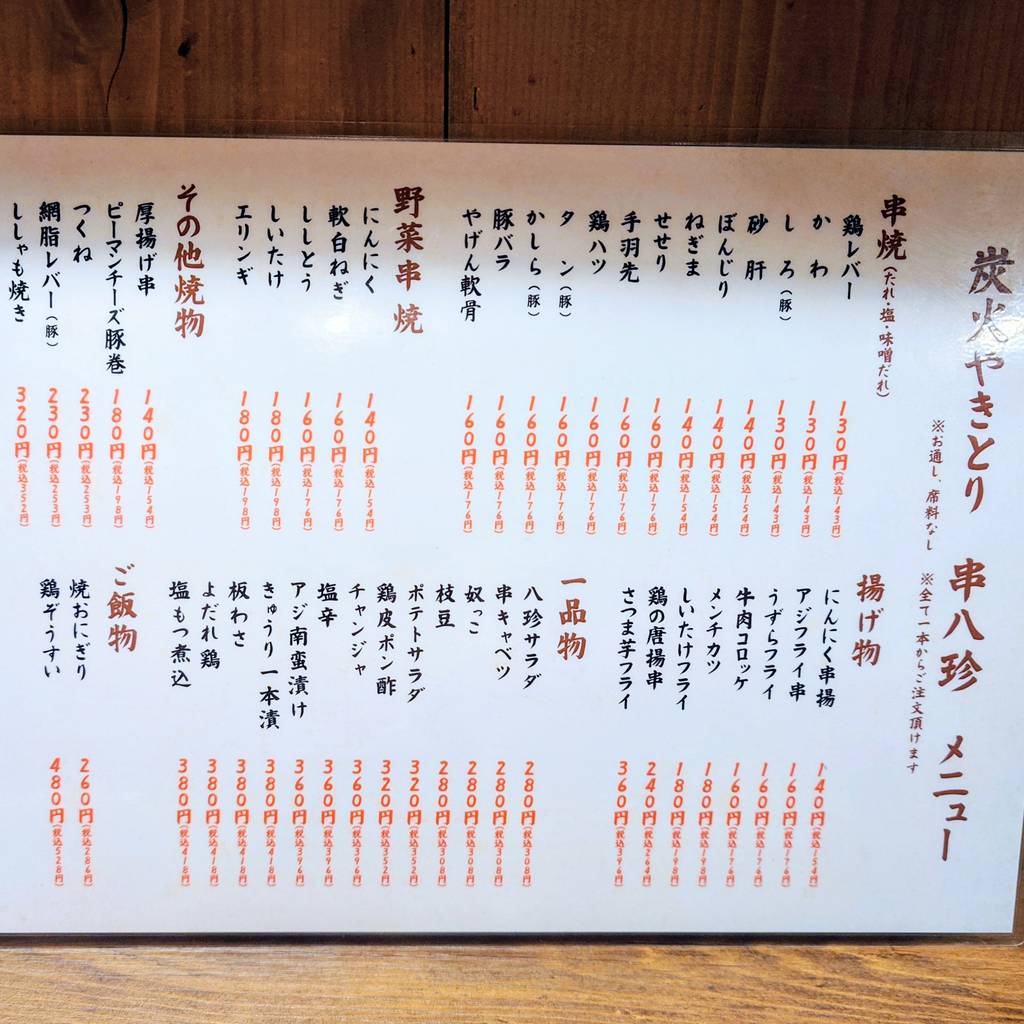 炭火やきとり 串八珍 メニュー
※お通し、席料なし ※全て一本からご注文頂けます
串焼(たれ・塩・味噌だれ)
鶏レバー 130円(税込143円)
かわ 130円(税込143円)
しろ(豚) 130円(税込143円)
砂肝 140円(税込154円)
ぼんじり 140円(税込154円)
ねぎま 140円(税込154円)
せせり 160円(税込176円)
手羽先 160円(税込176円)
鶏ハツ 160円(税込176円)
タン(豚) 160円(税込176円)
かしら(豚) 160円(税込176円)
豚バラ 160円(税込176円)
やげん軟骨 160円(税込176円)
野菜串焼
にんにく 140円(税込154円)
軟白ねぎ 160円(税込176円)
ししとう 160円(税込176円)
しいたけ 180円(税込198円)
エリンギ 180円(税込198円)
その他焼物
厚揚げ串 140円(税込154円)
ピーマンチーズ豚巻 180円(税込198円)
つくね 230円(税込253円)
網脂レバー(豚) 230円(税込253円)
ししゃも焼き 320円(税込352円)
揚げ物
にんにく串揚 140円(税込154円)
アジフライ串 160円(税込176円)
うずらフライ 160円(税込176円)
牛肉コロッケ 160円(税込176円)
メンチカツ 180円(税込198円)
しいたけフライ 180円(税込198円)
鶏の唐揚串 240円(税込264円)
さつま芋フライ 360円(税込396円)
一品物
八珍サラダ 280円(税込308円)
串キャベツ 280円(税込308円)
奴っこ 280円(税込308円)
枝豆 280円(税込308円)
ポテトサラダ 320円(税込352円)
鶏皮ポン酢 320円(税込352円)
チャンジャ 360円(税込396円)
塩辛 360円(税込396円)
アジ南蛮漬け 360円(税込396円)
きゅうり一本漬 380円(税込418円)
板わさ 380円(税込418円)
よだれ鶏 380円(税込418円)
塩もつ煮込 380円(税込418円)
ご飯物
焼おにぎり 260円(税込286円)
鶏ぞうすい 480円(税込528円)